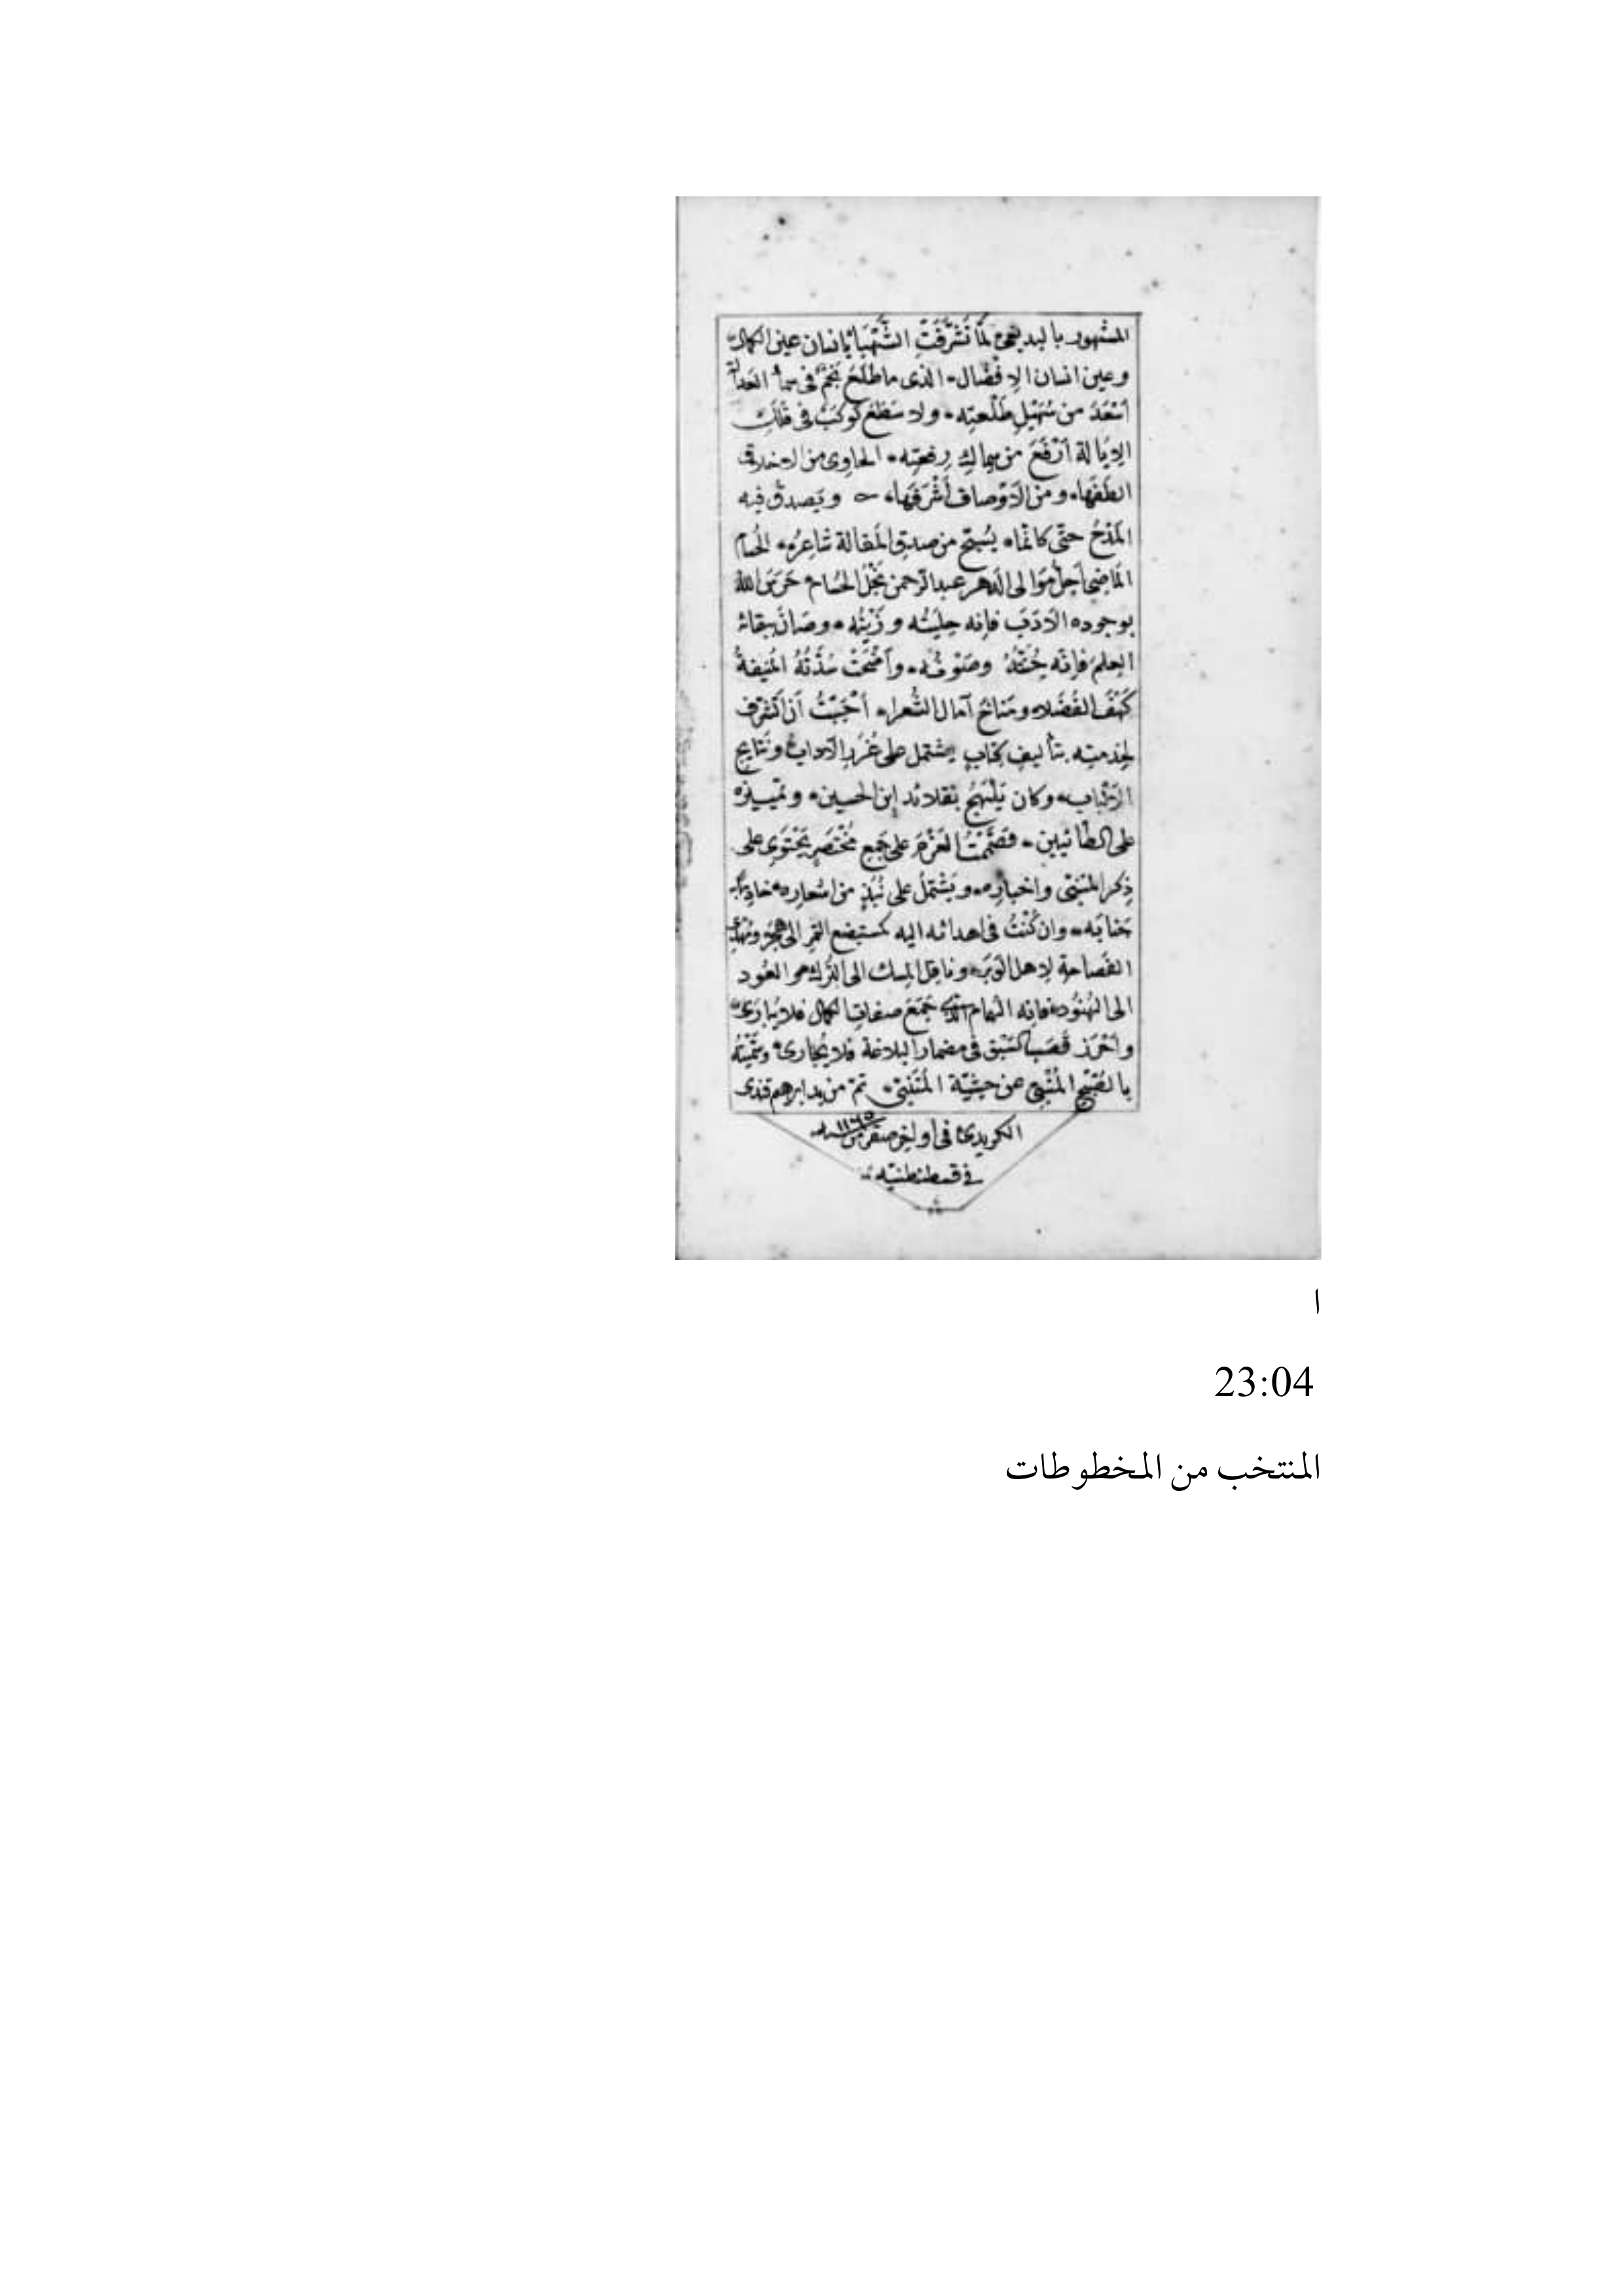 المشهور بالبديعي لَمَّا تَشَرَّفَتِ الشَّهْبَاءُ بإنسان عين الكمال
وعين انسان الإفْضال، الذى ما طَلَعَ نَجْمٌ فى سماء العَدالة
أسْعَدَ من سُهَيْلِ طَلْعته، ولا سَطَعَ كوكَبٌ فى فَلَكِ
الإيالة أَرْفَعَ من سِماكِ رِفعته، الحاوى من الاخلاق
الطَفَها، ومن الأوْصاف أَشْرَفَها، ويَصدقُ فيه
المَدْحُ حتّى كانّما، يُسَبِّح من صِدقِ المَقالة شاعِرُه، الحُسام
المَاضِى أَجلُّ مَوالى الدّهر عبد الرّحمن نَجْلُ الحُسام حَرَسَ اللّٰه
بوجوده الأدَبَ فإنه حِليَتُه وزَيْنُه، وصَانَ ببقائه
العِلمَ فإنّه جُنَّتُهُ وصَوْنُه، وأَضْحَتْ سُدَّتُهُ المُنيفةُ
كَهْفَ الفُضَلاء ومَناخَ آمال الشُّعراء، أحْبَبْتُ أن أتَعَرَّف
لِخدمتِه بتأليفِ كِتابٍ يشتمل على غُرَرِ الآداب ونَتايج
الألْبابِ، وكان يَلْهَجُ بقلائد ابن الحسين، وتمييزه
على الطّائيين، فصَمَّمْتُ العَزْمَ على جَمعِ مُخْتَصَرٍ يَحْتَوِى على
ذِكر المتنبّى واخبارِه، ويَشْتَمِلُ على نُبَذٍ من اشعاره، خادِمًا به
جَنابَه، وان كُنْتُ فى اهدائه اليه كمستبضع التّمرِ الى هَجَرَ ومُهْدِى
الفَصاحة لِاهل الوَبَر، وناقِل المِسك الى التُّرك، والعُود
الى الهُنُود، فإنه الهُمام الذى جَمَعَ صفات الكمال فلا يُبارَى،
وأَحْرَزَ قَصَبَ السَّبْقِ فى مضمار البلاغة فلا يُجارى، وسَمَّيْتُه
بالصُّبْحِ المُنْبِي عن حيثيّة المُتَنَبّي، تمّ من يد ابرهيم قندى
الكريدىّ فى اواخر صفر من ١١٦٥ سنه
فى قسطنطنيّه
ا
23:04
المنتخب من المخطوطات